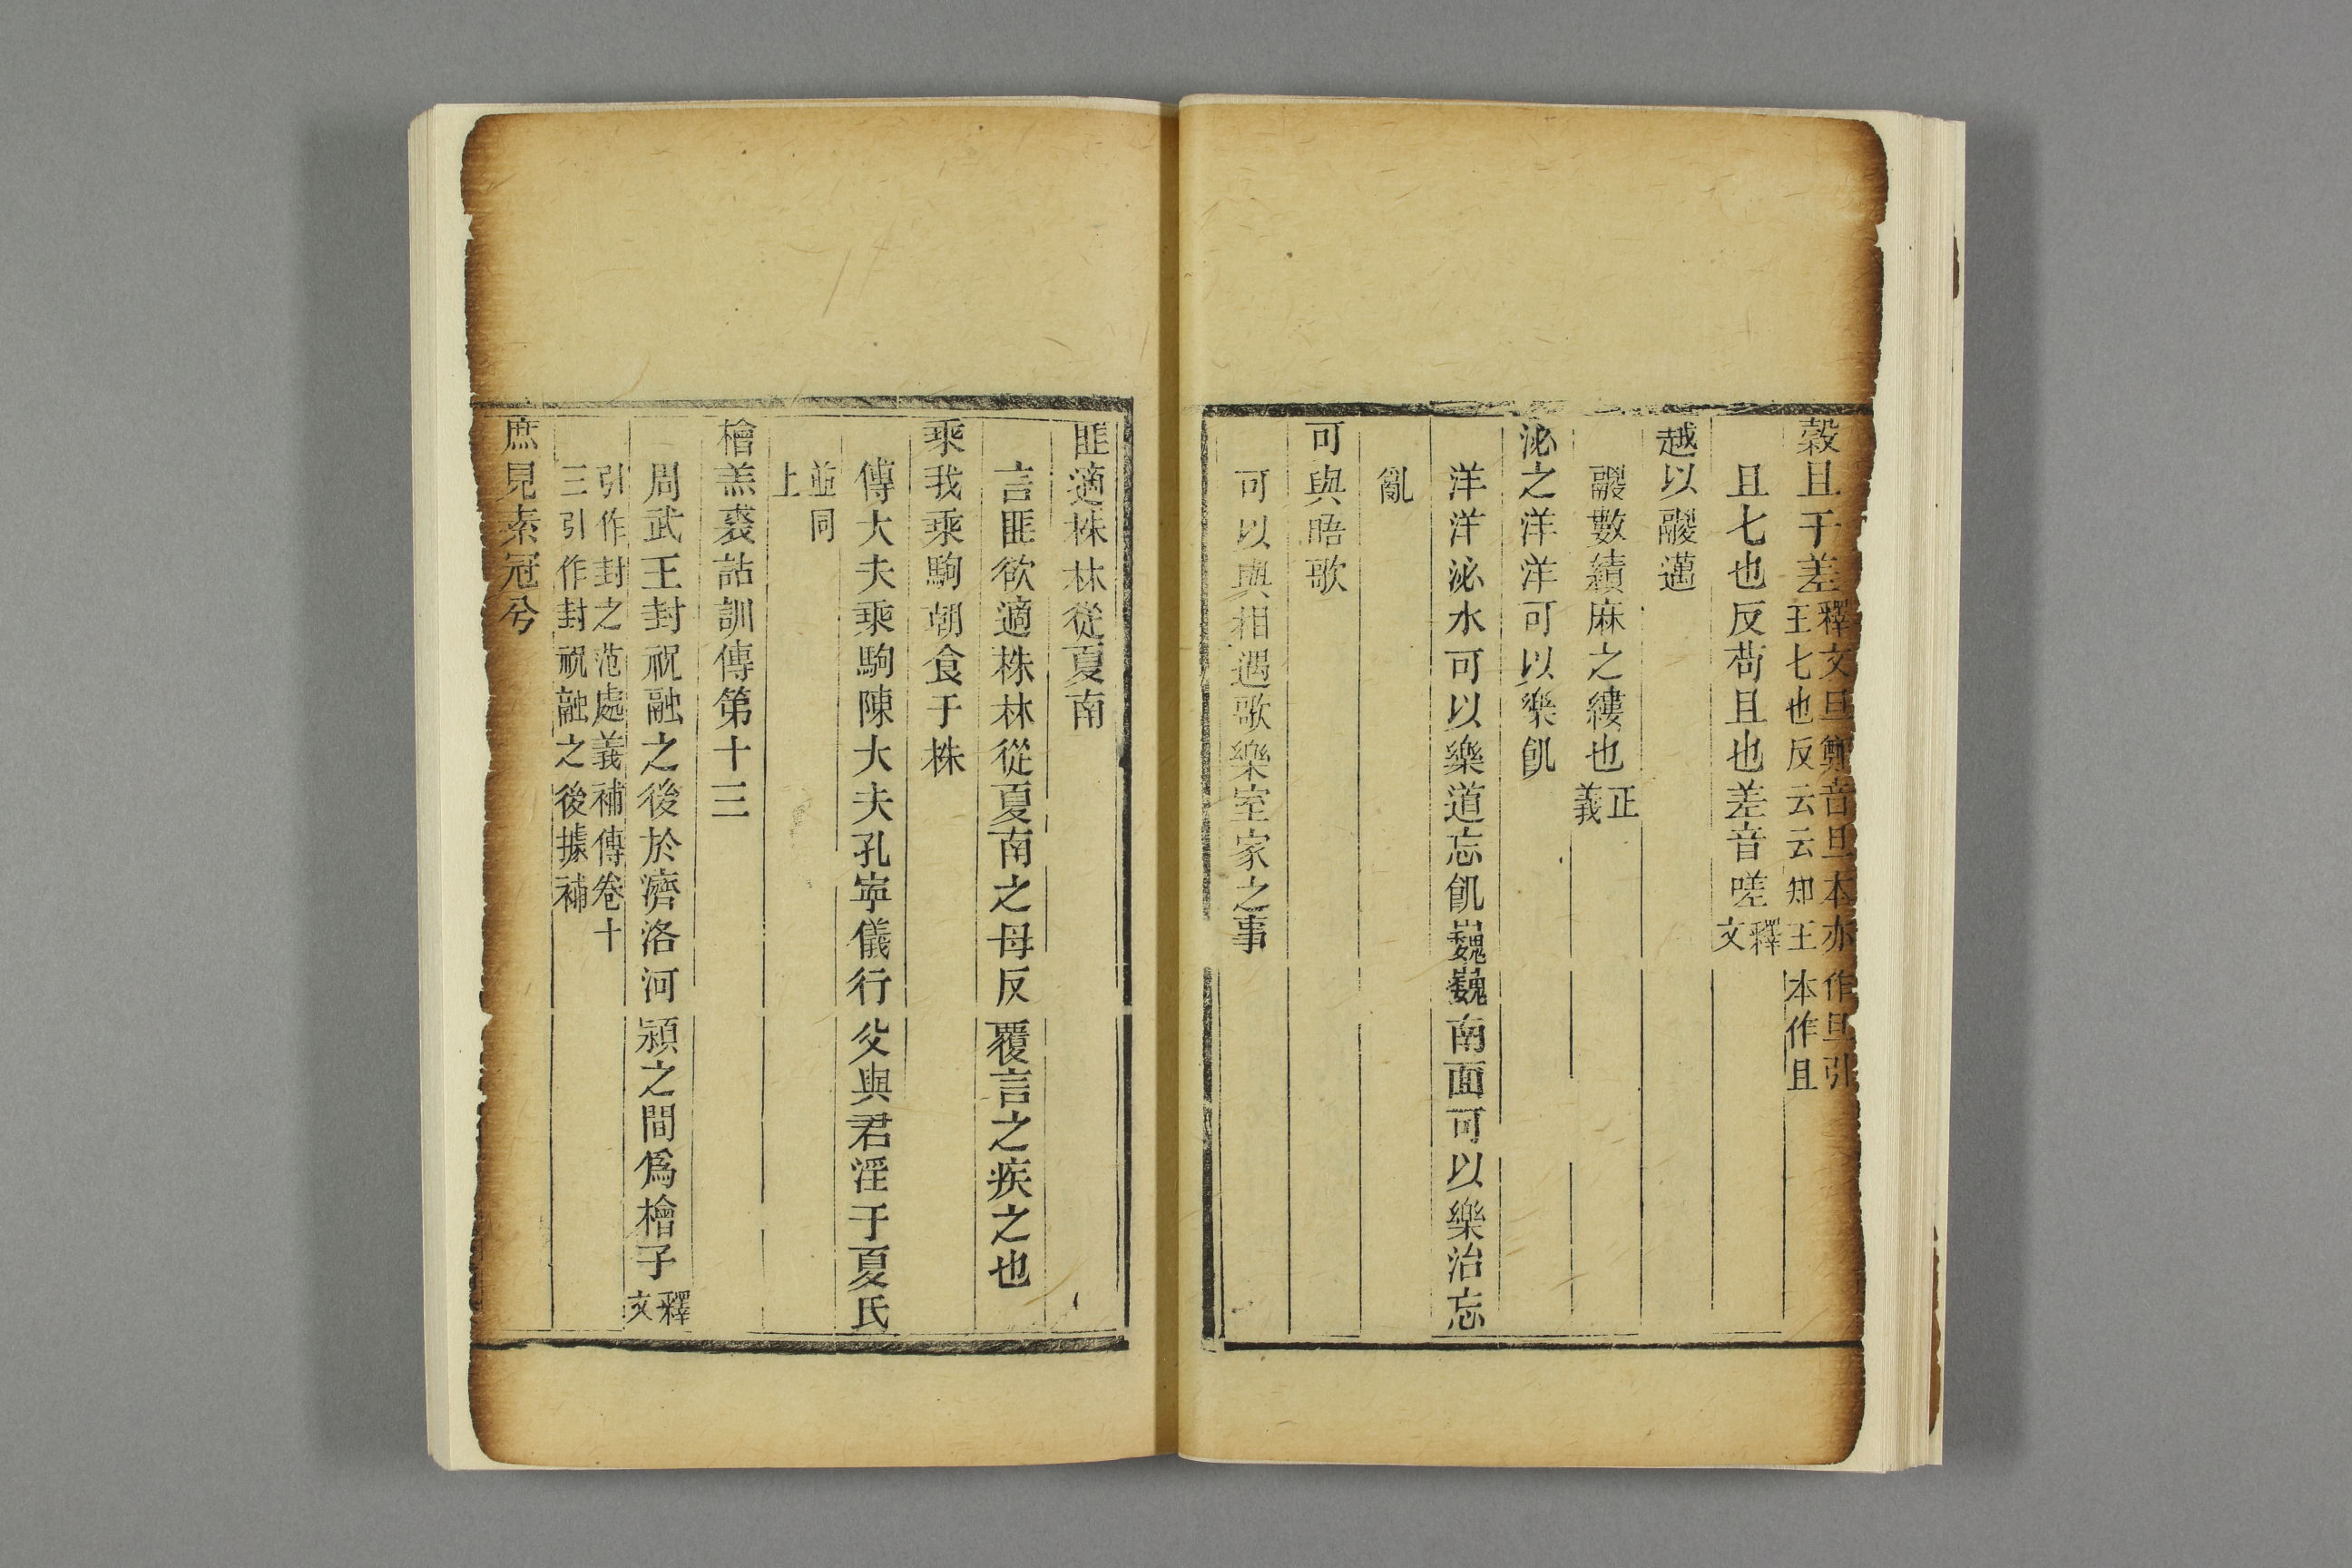 穀且于差釋文旦鄭音旦本亦作且引
王七也反云云知王本作且
且七也反苟且也差音嗟釋文
越以鬷邁
鬷數績麻之縷也正義
泌之洋洋可以樂飢
洋洋泌水可以樂道忘飢巍巍南面可以樂治忘
亂
可與晤歌
可以與相遇歌樂室家之事
匪適株林從夏南
言匪欲適株林從夏南之母反覆言之疾之也
乘我乘駒朝食于株
傳大夫乘駒陳大夫孔寧儀行父與君淫于夏氏
並同上
檜羔裘詁訓傳第十三
周武王封祝融之後於濟洛河潁之間爲檜子釋文
引作封之范處義補傳卷十
三引作封祝融之後據補
庶見素冠兮